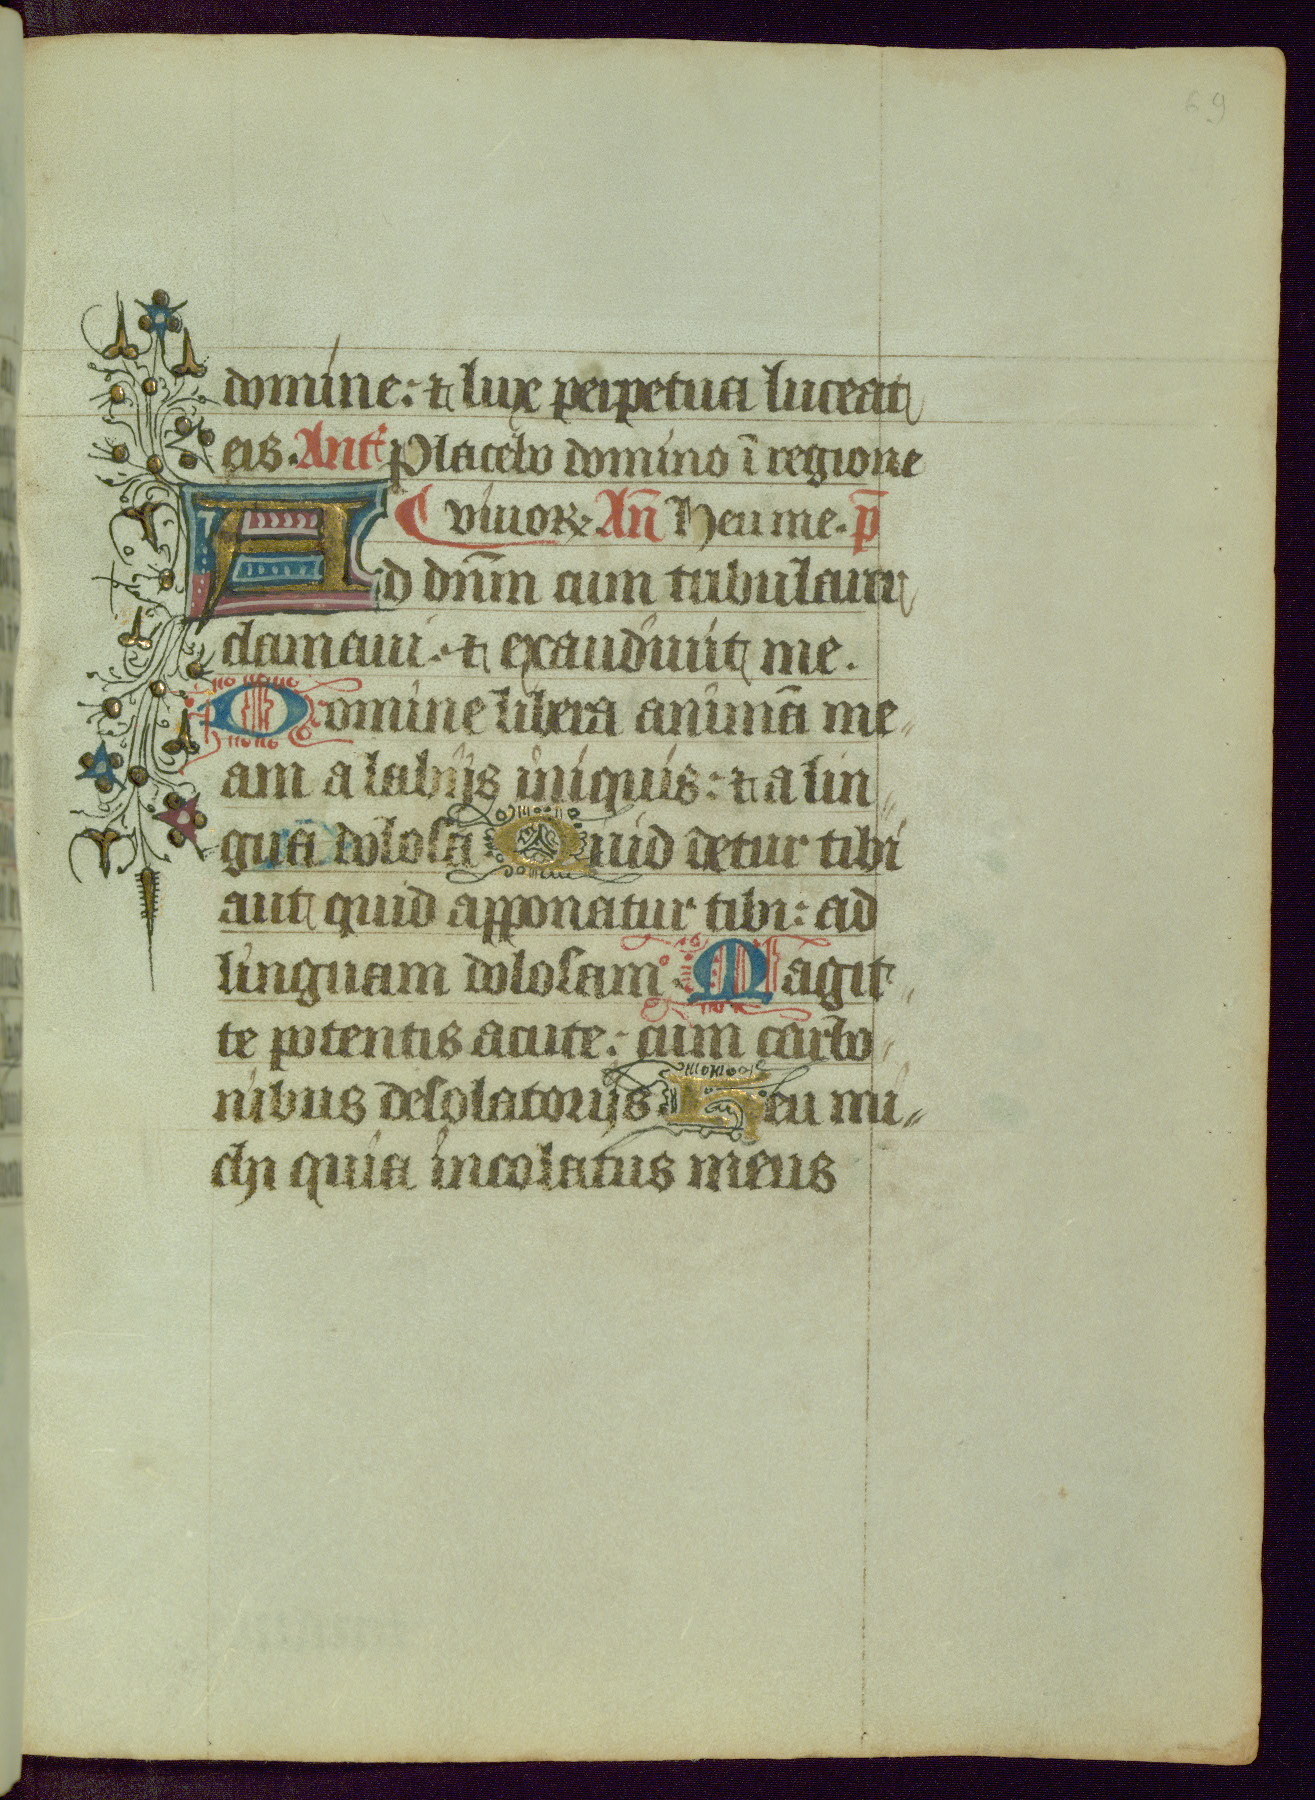 69
domine: ⁊ lux perpetua luceat
eis. Ant̄ Placebo domino ī regione
viuoꝝ Añ Heu me. p̄
Ad dn̄m cum tribularer
clamaui. ⁊ exaudiuit me.
Domine libera animā me〃
am a labijs iniquis: ⁊ a lin〃
gua dolosa Quid detur tibi
aut quid apponatur tibi: ad
linguam dolosam. Magit〃
te potentis acute: cum carbo〃
nibus desolatorijs. Heu mi〃
chi quia incolatus meus